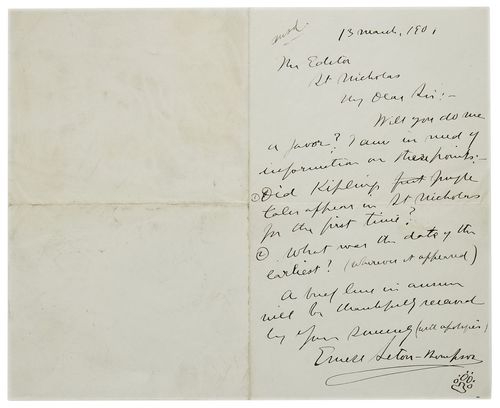 13 March, 1901
The Editor
St Nicholas
My Dear Sir:-
Will you do me
a favor? I am in need of
information on these points:-
① Did Kiplings first Jungle
tales appear in St Nicholas
for the first time?
② What was the date of the
earliest? (Wherever it appeared)
A brief line in answer
will be thankfully received
by yours sincerely (with apologies)
Ernest Seton-Thompson